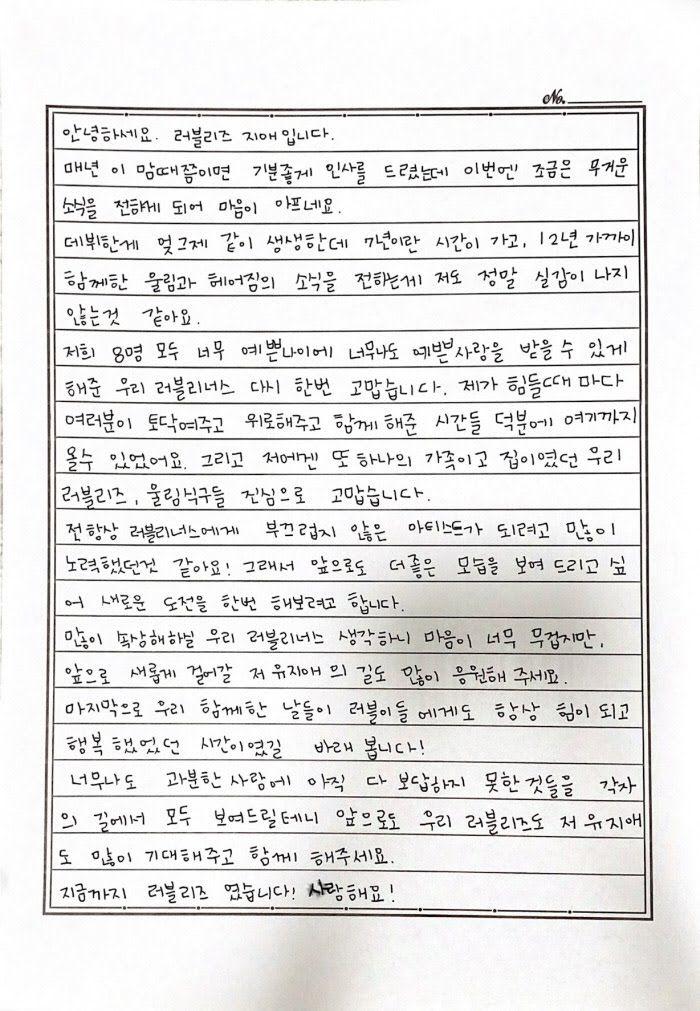 No.
안녕하세요. 러블리즈 지애입니다.
매년 이 맘때쯤이면 기분좋게 인사를 드렸는데 이번엔 조금은 무거운
소식을 전하게 되어 마음이 아프네요.
데뷔한게 엊그제 같이 생생한데 7년이란 시간이 가고, 12년 가까이
함께한 울림과 헤어짐의 소식을 전하는게 저도 정말 실감이 나지
않는것 같아요.
저희 8명 모두 너무 예쁜나이에 너무나도 예쁜사랑을 받을수 있게
해준 우리 러블리너스 다시 한번 고맙습니다. 제가 힘들때 마다
여러분이 토닥여주고 위로해주고 함께 해준 시간들 덕분에 여기까지
올수 있었어요. 그리고 저에겐 또 하나의 가족이고 집이였던 우리
러블리즈, 울림식구들 진심으로 고맙습니다.
전항상 러블리너스에게 부끄럽지 않은 아티스트가 되려고 많이
노력했던것 같아요! 그래서 앞으로도 더좋은 모습을 보여 드리고 싶
어 새로운 도전을 한번 해보려고 합니다.
많이 속상해하실 우리 러블리너스 생각하니 마음이 너무 무겁지만,
앞으로 새롭게 걸어갈 저 유지애 의 길도 많이 응원해 주세요.
마지막으로 우리 함께한 날들이 러블이들 에게도 항상 힘이 되고
행복 했었던 시간이였길 바래 봅니다!
너무나도 과분한 사랑에 아직 다 보답하지 못한 것들을 각자
의 길에서 모두 보여드릴테니 앞으로도 우리 러블리즈도 저 유지애
도 많이 기대해주고 함께 해주세요.
지금까지 러블리즈 였습니다! 사랑해요!